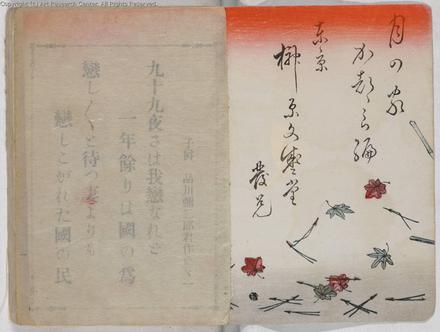 Copyright (c) Art Research Center, All Rights Reserved.
月の家
かをる編
東京
榊原文盛堂
發兌
子爵 品川彌二郎君作
九十九夜さは我戀なれど
一年餘りは國の爲
戀し／＼と待つ妻よりも
戀しこがれた國の民